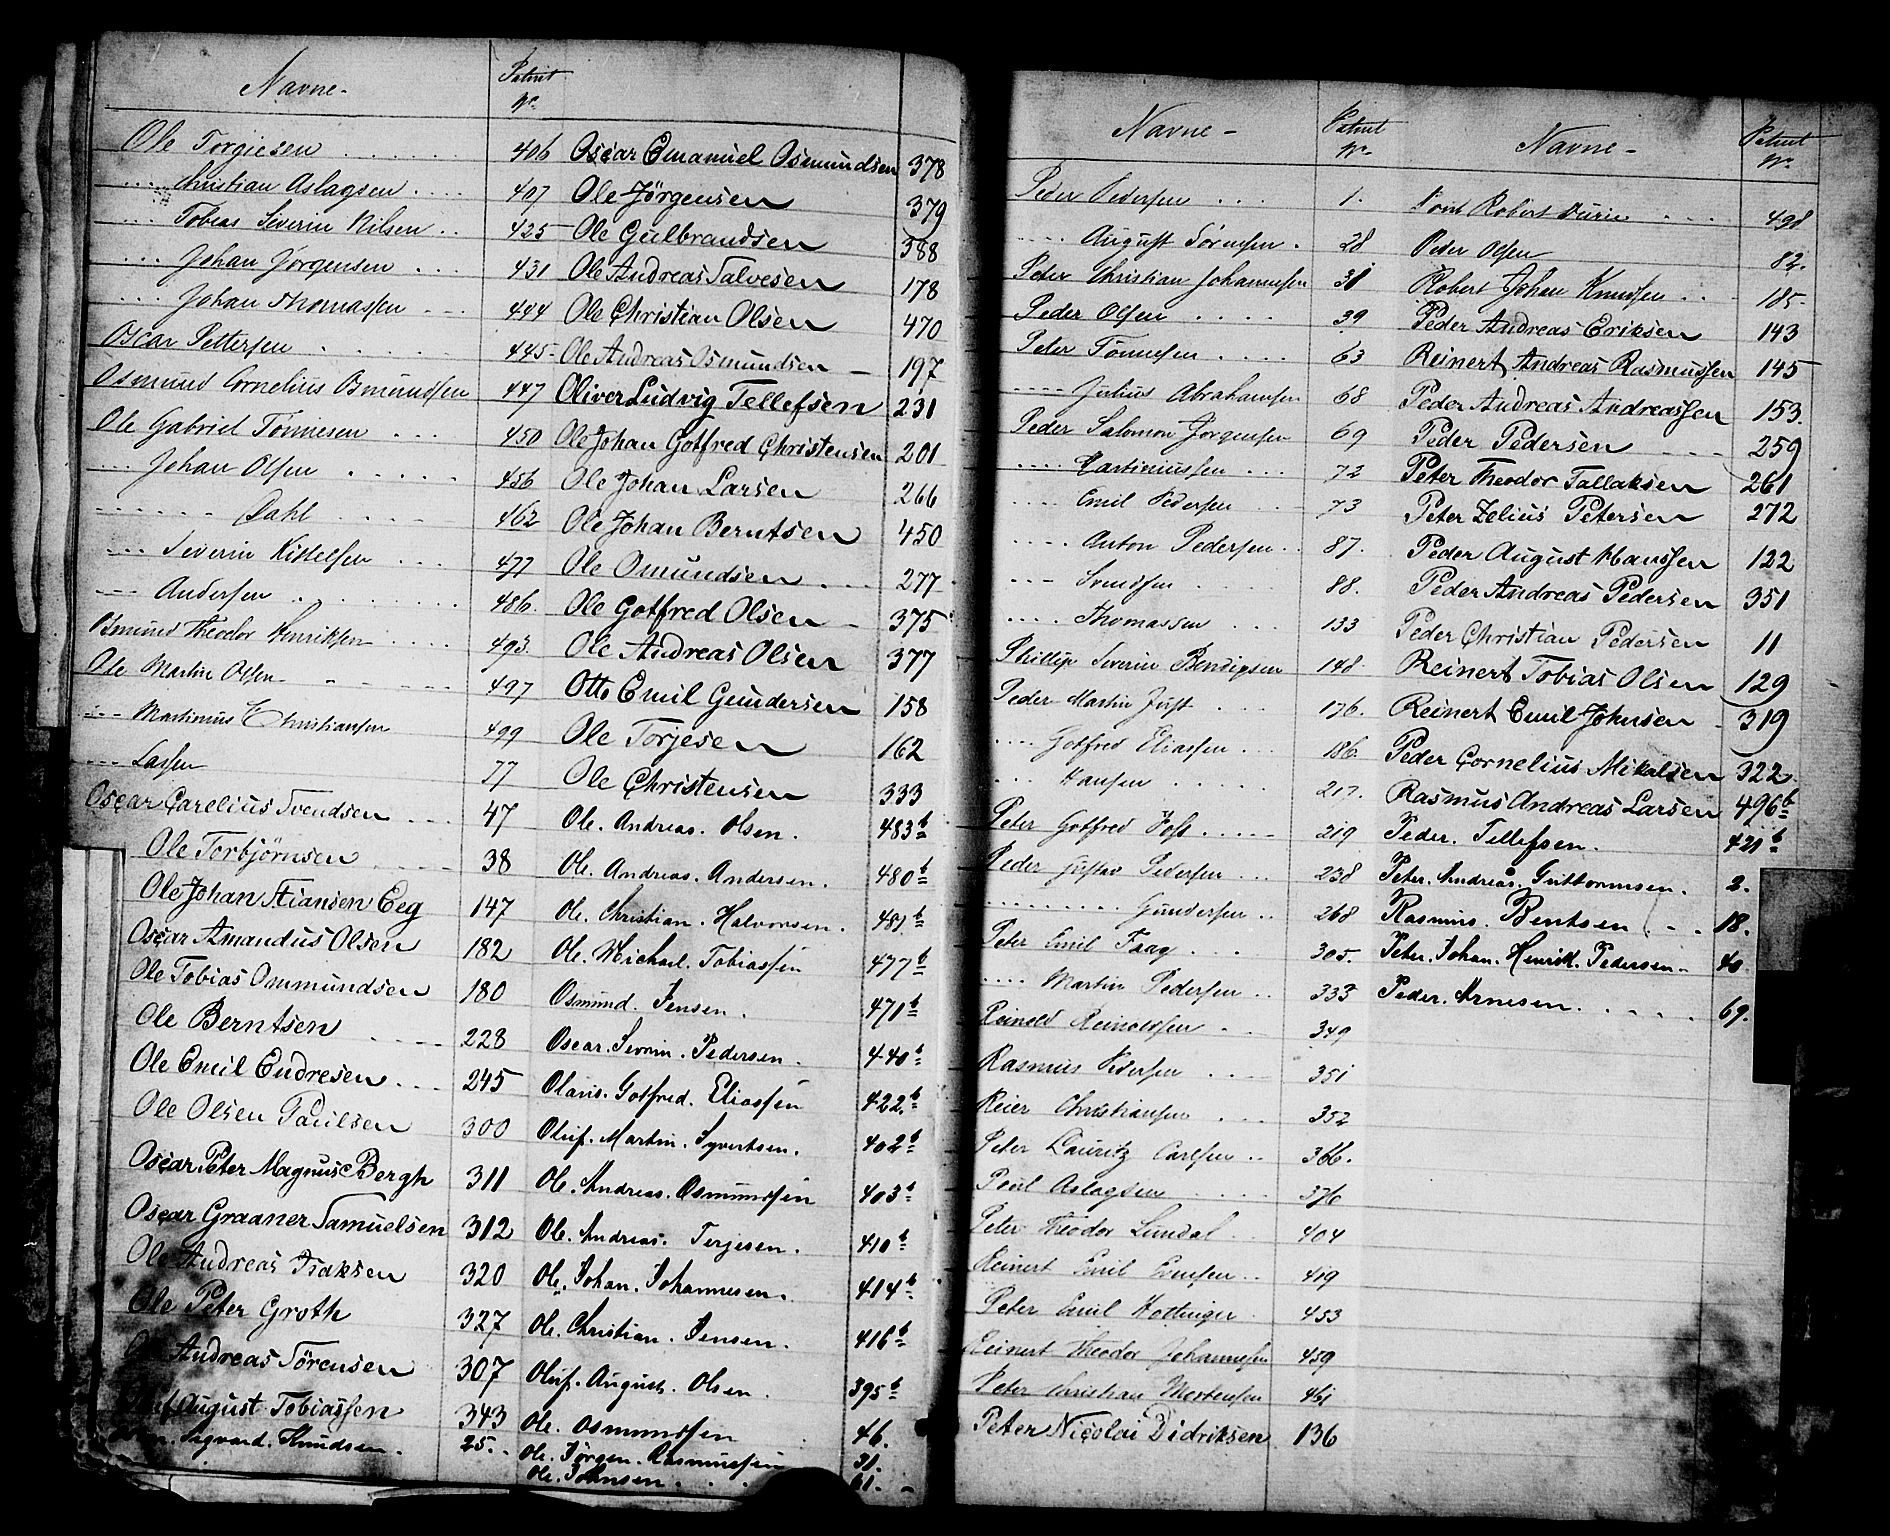 Navne - Patent No
Ole Torgiesen . . . . . . 406
. . . . Christian Aslagsen . . . . 407
. . . Tobias Severin Nilsen . . 425
. . . Johan Jørgensen . . . 431
. . . Johan Thomassen - - - 444
Oscar Pettersen . . . . . . 445
Osmund Cornelius Osmundsen 447
Ole Gabriel Tønnesen . . . 450
. . . Johan Olsen . . . . . 456
. . . . . . Dahl . . . . 462
. . . Severin Kittelsen . . . 477
. . . Andersen . . . . . . 486.
Osmund Theodor Henriksen . . . . 493.
Ole Martin Olsen - - - - - - 497
. . . Martinus Christiansen 499
. . . Lassen 77
Oscar Carelius Svendsen . . . 47
Ole Torbjørnsen . . . . 38
Ole Johan Stiansen Eeg 147
Oscar Amandus Olsen 182
Ole Tobias Ommundsen 180
Ole Berntsen . . . . 228
Ole Emil Endresen . . . 245
Ole Olsen Paulsen 300
Oscar Peter Magnus Bergh 311
Oscar Graaner Samuelsen 312
Ole Andreas Isaksen 320
Ole Peter Groth 327
Ole Andreas Sörensen 307
August Tobiassen 343
Sigvard. Knudsen. 25.
Oscar Emanuel Osmundsen 378
Ole Jørgensen 379
Ole Gulbrandsen 388
Ole Andreas Salvesen 178
Ole Christian Olsen 470
Ole Andreas Osmundsen - 197
Oliver Ludvig Tellefsen 231
Ole Johan Gotfred Christensen 201
Ole Johan Larsen 266
Ole Johan Berntsen 450
Ole Omundsen . . . 277
Ole Gotfred Olsen - 375
Ole Andreas Olsen 377
Otto Emil Gundersen 158
Ole Torjesen 162
Ole Christensen 333
Ole. Andreas. Olsen. 483b
Ole. Andreas. Andersen. 480b
Ole. Christian. Halvorsen. 481b
Ole. Michael. Tobiassen 477b
Osmund. Jensen. 471b
Oscar. Severin. Pedersen. 440b
Olaus. Gotfred. Eliassen 422.b
Oluf. Martin. Syvertsen. 402b
Ole. Andreas. Osmundsen 403b
Ole. Andreas. Terjesen. 410b
Ole. Johan. Johannesen. 414b
Ole. Christian. Jensen. 416b
Oluf. August. Olsen. 395b
Ole. Osmundsen 46.
Ole. Jörgen. Rasmussen 31.
Ole. Johnsen. . . . 61.
Navne - Patent No
Peder Pedersen . . . 1.
. . . . August Sørensen . 28
Peter Christian Johannessen 31
Peder Olsen . . . . 39
Peter Tønnesen . . . . 63
. . . . Julius Abrahamsen 68
Peder Salomon Jørgensen 69
. . . . Martiniussen . . . 72
. . . . Emil Pedersen . . . 73
. . . . Anton Pedersen . . 87.
. . . . Svendsen . 88.
. . . . Thomassen . . . 133
Phillip Severin Bendigsen 148.
Peder Martin Just . . . 176.
. . . . Gotfred Eliassen . . . 186.
. . . Hansen . . . . . 217.
Peter Gotfred Foss . . . . . 219
Peder Gustav Pedersen . . . 238
. . . . . . . . . Gundersen . . 268
Peter Emil Faag . . . 305.
. . . . Martin Pedersen . . 333
Reinold Reinoldsen . . 349
Rasmus Pedersen . . . . 351
Reier Christiansen . . . 352
Peter Lauritz Carlsen . . 366.
Poul Aslagsen . . . . 376
Peter Theodor Lundal . . 404
Reinert Emil Evensen . . 419
Peter Emil Hottinger . 453
Reinert Theodor Johannesen 459
Peter Christian Mortensen 461
Peter Nicolai Didriksen 136
Navne - Patent No
Point Robert Durie . . . . 498
Peder Olsen 82.
Robert Johan Knudsen . . - 185.
Peder Andreas Eriksen 143
Reinert Andreas Rasmussen 145
Peder Andreas Andreassen 153.
Peder Pedersen - - - - 259
Peter Theodor Tallaksen 261
Peter Zelius Petersen 272
Peder August Hanssen 122
Peder Andreas Pedersen 351
Peder Christian Pedersen 11
Reinert Tobias Olsen 129
Reinert Emil Johnsen - 319
Peder Cornelius Mikalsen 322.
Rasmus Andreas Larsen 496b
Peder. Tellefsen. 421b
Peter. Andreas. Guttormsen. 2.
Rasmus. Bentsen . - . 18.
Peter. Johan. Henrik. Pedersen. 40.
Peder. Arnesen. . . . . . 69.